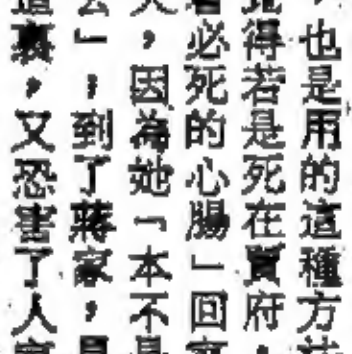 ，也是用的這種方
得若是死在賈府，
必死的心腸」回
，因為她「本不是
」，到了蔣家，是
裏，又恐害了人家